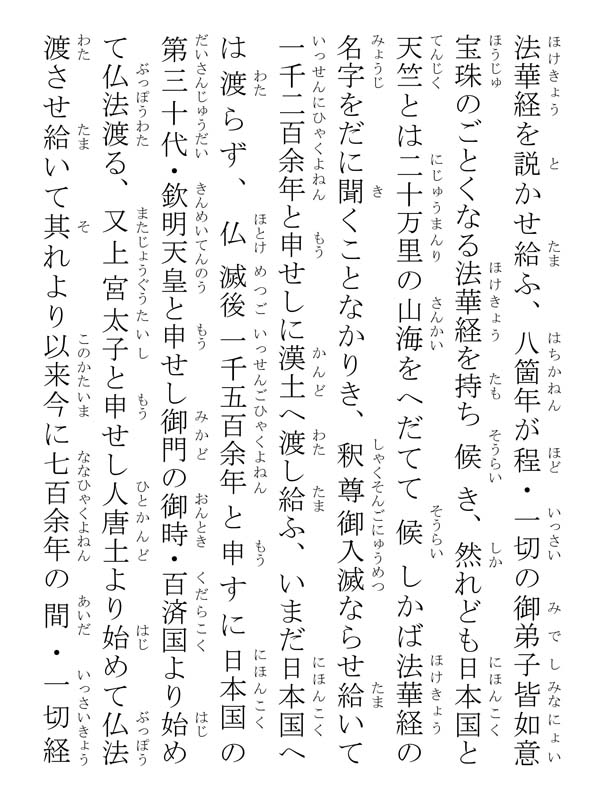 法華経を説かせ給ふ、八箇年が程・一切の御弟子皆如意
宝珠のごとくなる法華経を持ち候き、然れども日本国と
天竺とは二十万里の山海をへだてて候しかば法華経の
名字をだに聞くことなかりき、釈尊御入滅ならせ給いて
一千二百余年と申せしに漢土へ渡し給ふ、いまだ日本国へ
は渡らず、仏滅後一千五百余年と申すに日本国の
第三十代・欽明天皇と申せし御門の御時・百済国より始め
て仏法渡る、又上宮太子と申せし人唐土より始めて仏法
渡させ給いて其れより以来今に七百余年の間・一切経